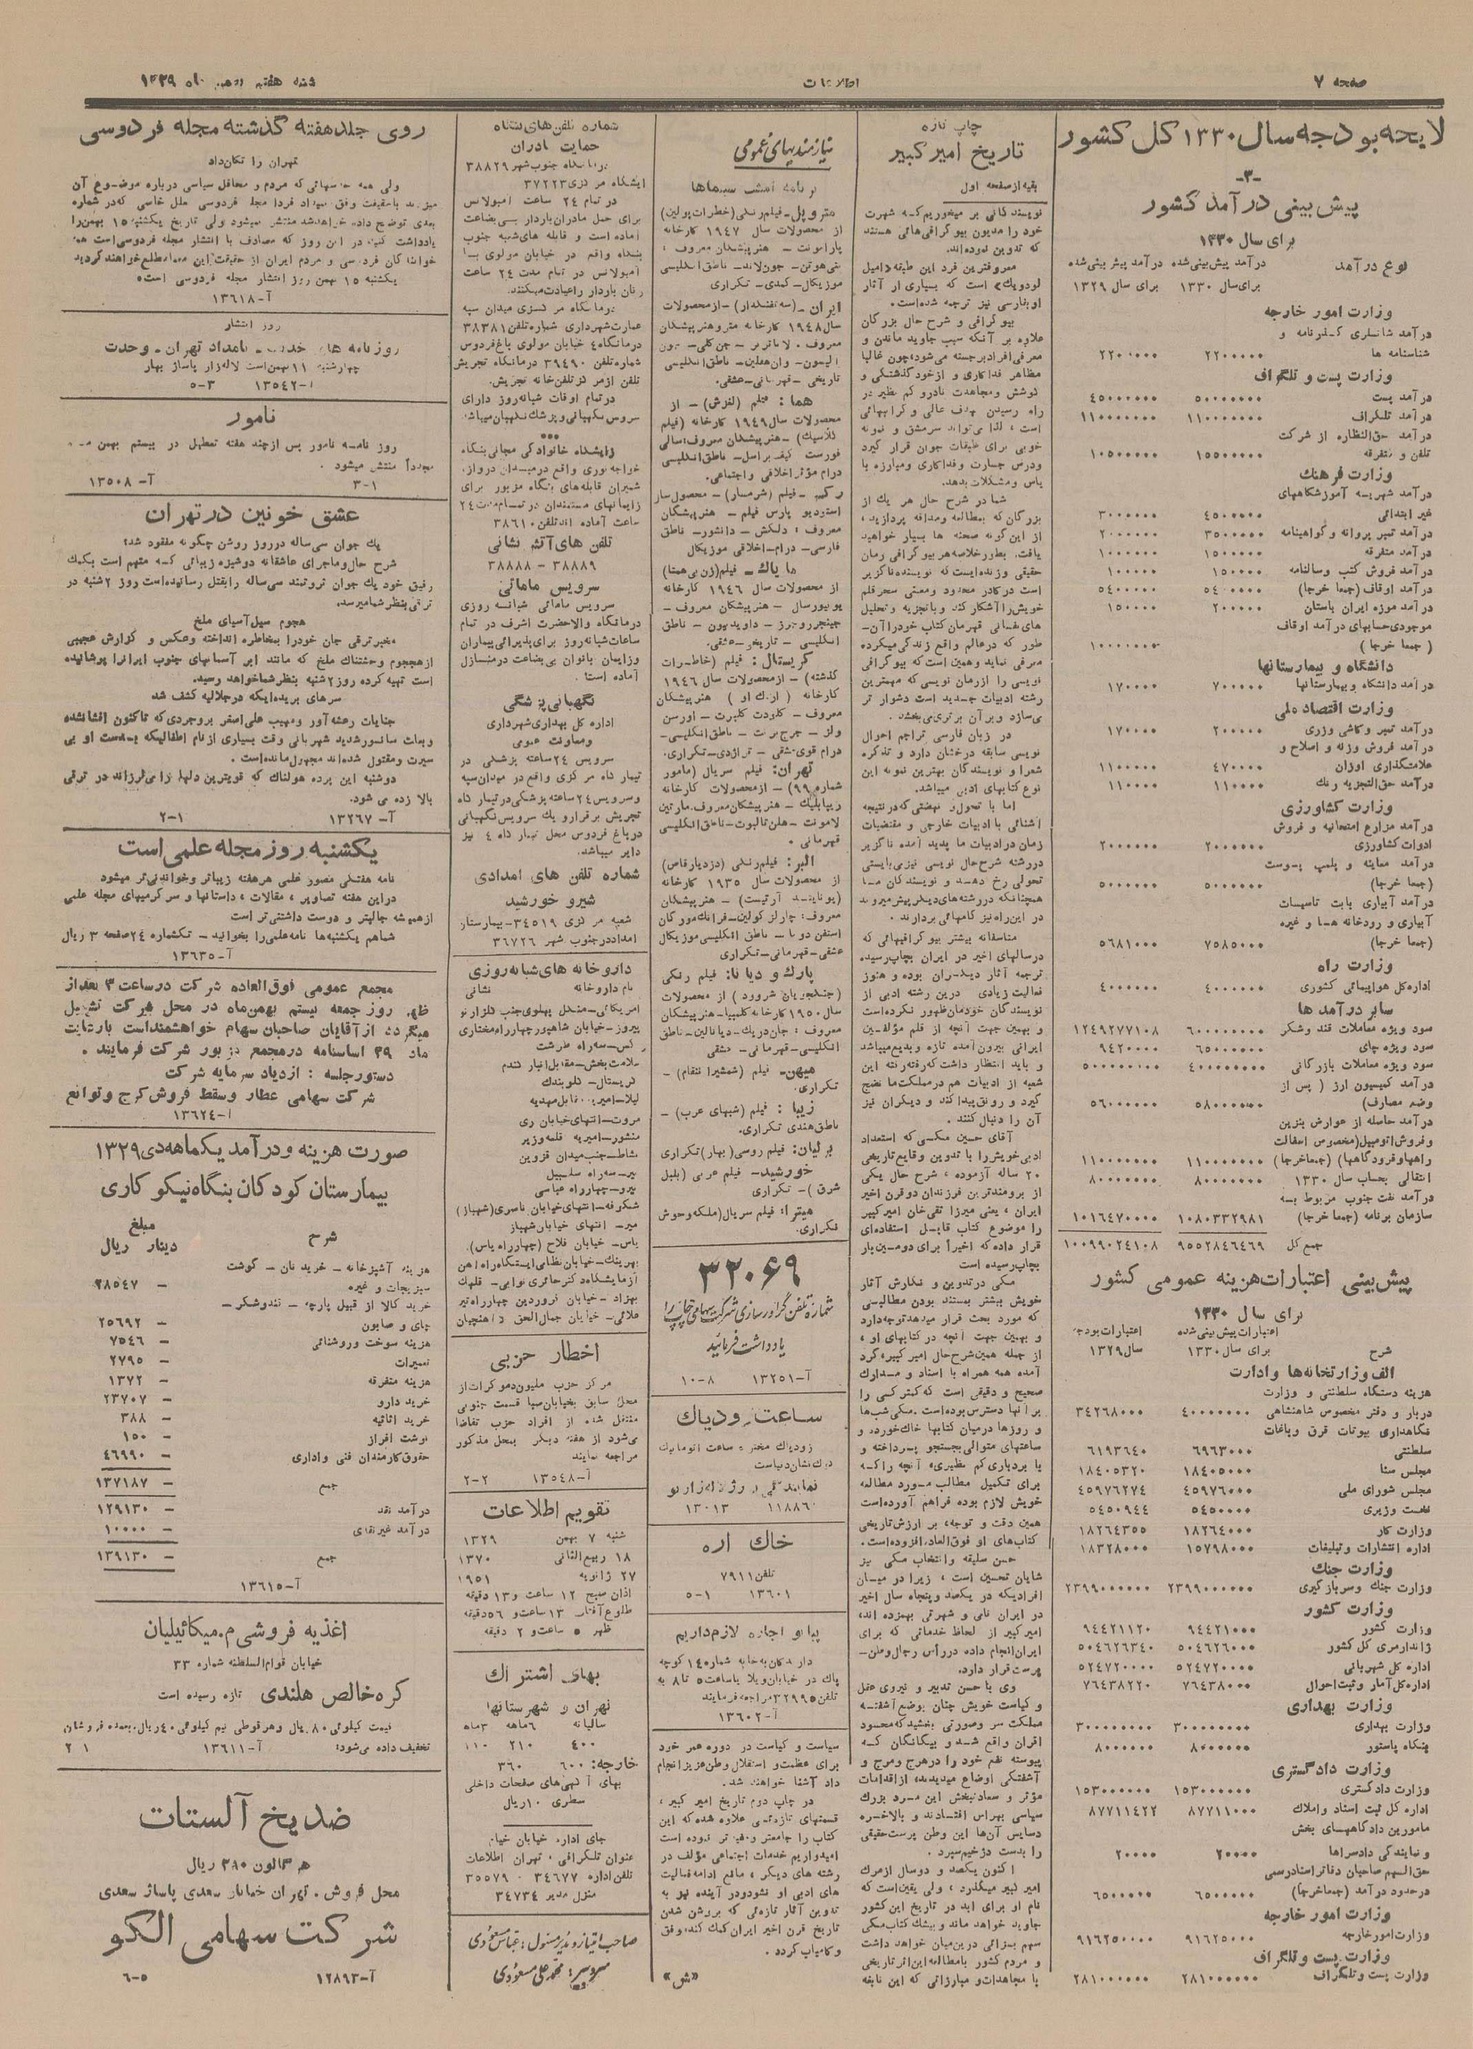 صفحه ۷
اطلاعات
شنبه هفتم بهمن ماه ۱۳۲۹
لایحه بودجه سال ۱۳۳۰ کل کشور
-۳-
پیش بینی درآمد کشور
برای سال ۱۳۳۰
نوع درآمد
درآمد پیش بینی شده برای سال ۱۳۳۰
درآمد پیش بینی شده برای سال ۱۳۲۹
وزارت امور خارجه
شناسنامه ها ۲۲۰۰۰۰۰ ۲۲۰۰۰۰۰
وزارت پست و تلگراف
درآمد پست ۵۰۰۰۰۰۰۰ ۴۵۰۰۰۰۰۰
درآمد تلگراف ۱۱۰۰۰۰۰۰۰ ۱۱۰۰۰۰۰۰۰
درآمد حق‌النظاره از شرکت
تلفن و متفرقه ۱۵۵۰۰۰۰۰ ۱۰۵۰۰۰۰۰
وزارت فرهنگ
درآمد شهریه آموزشگاههای
غیر ابتدائی ۴۵۰۰۰۰۰ ۳۰۰۰۰۰۰
درآمد تمبر پروانه و گواهینامه ۳۵۰۰۰۰۰ ۲۰۰۰۰۰۰
درآمد متفرقه ۱۵۰۰۰۰۰ ۱۰۰۰۰۰۰
درآمد فروش کتب و سالنامه ۱۵۰۰۰۰ ۱۰۰۰۰۰
درآمد موزه ایران باستان ۲۰۰۰۰۰ ۱۵۰۰۰۰
موجودی حسابهای درآمد اوقاف
(جمعا خرجا)
دانشگاه و بیمارستانها
درآمد دانشگاه و بیمارستانها ۷۰۰۰۰۰ ۱۷۰۰۰۰
وزارت اقتصاد ملی
درآمد تمبر و کاشی وزری ۲۰۰۰۰۰ ۱۷۰۰۰۰
درآمد فروش وزنه و اصلاح و
علامتگذاری اوزان ۴۷۰۰۰۰ ۱۱۰۰۰۰۰
درآمد حق‌التجزیه رنگ ۱۱۰۰۰۰ ۱۱۰۰۰۰
وزارت کشاورزی
درآمد مزارع امتحانیه و فروش
ادوات کشاورزی ۲۰۰۰۰۰۰ ۲۰۰۰۰۰۰
درآمد معاینه و پلمپ پوست
(جمعا خرجا) ۵۰۰۰۰۰۰ ۵۰۰۰۰۰۰
درآمد آبیاری بابت تاسیسات
آبیاری و رودخانه ها و غیره
(جمعا خرجا) ۷۵۸۵۰۰۰ ۵۶۸۱۰۰۰
وزارت راه
اداره کل هواپیمائی کشوری ۴۰۰۰۰۰۰ ۴۰۰۰۰۰۰
سایر درآمد ها
سود ویژه معاملات قند و شکر ۶۰۰۰۰۰۰۰۰ ۱۲۴۹۲۷۷۱۰۸
سود ویژه چای
سود ویژه معاملات بازرگانی
درآمد کمیسیون ارز (پس از
وضع مصارف)
درآمد حاصله از عوارض بنزین
و فروش اتومبیل (مخصوص اسفالت
راهها و فرودگاهها) (جمعا خرجا) ۱۱۰۰۰۰۰۰۰ ۱۱۰۰۰۰۰۰۰
انتقالی بحساب سال ۱۳۳۰
درآمد نفت جنوب مربوط به
سازمان برنامه (جمعا خرجا) ۱۰۸۰۳۳۲۹۸۱ ۱۰۱۶۴۷۰۰۰۰
جمع کل ۹۵۵۲۸۴۶۴۶۹ ۱۰۰۹۹۰۲۴۱۰۸
پیش بینی اعتبارات هزینه عمومی کشور
برای سال ۱۳۳۰
شرح
اعتبارات پیش بینی شده برای سال ۱۳۳۰
اعتبارات بودجه سال ۱۳۲۹
الف وزارتخانه ها و ادارت
هزینه دستگاه سلطنتی و وزارت
دربار و دفتر مخصوص شاهنشاهی ۴۰۰۰۰۰۰۰ ۳۴۲۶۸۰۰۰
نگاهداری بیوتات قرق و باغات
سلطنتی ۶۹۶۳۰۰۰ ۶۱۹۳۶۴۰
مجلس سنا ۱۸۴۰۵۰۰۰ ۱۸۴۰۵۳۲۰
مجلس شورای ملی ۴۵۹۷۶۰۰۰ ۴۵۹۷۶۲۷۴
نخست وزیری ۵۴۵۰۰۰۰ ۵۴۵۰۹۴۴
وزارت کار ۱۸۲۶۴۰۰۰ ۱۸۲۶۴۳۵۵
اداره انتشارات و تبلیغات ۱۵۷۹۸۰۰۰ ۱۸۳۲۸۰۰۰
وزارت جنگ
وزارت جنگ و سربازگیری ۲۳۹۹۰۰۰۰۰۰ ۲۳۹۹۰۰۰۰۰۰
وزارت کشور
وزارت کشور ۹۴۴۲۱۰۰۰ ۹۴۴۲۱۱۲۰
ژاندارمری کل کشور ۵۰۴۶۲۶۰۰۰ ۵۰۴۶۲۶۳۴۰
اداره کل شهربانی ۵۲۴۷۲۰۰۰۰ ۵۲۴۷۲۰۰۰۰
اداره کل آمار و ثبت احوال ۷۶۴۳۸۰۰۰ ۷۶۴۳۸۲۲۰
وزارت بهداری
وزارت بهداری ۳۰۰۰۰۰۰۰۰ ۳۰۰۰۰۰۰۰۰
بنگاه پاستور ۸۰۰۰۰۰۰ ۸۰۰۰۰۰۰
وزارت دادگستری
وزارت دادگستری ۱۵۳۰۰۰۰۰۰ ۱۵۳۰۰۰۰۰۰
اداره کل ثبت اسناد و املاک ۸۷۷۱۱۰۰۰ ۸۷۷۱۱۴۲۲
مامورین دادگاههای بخش
و نمایندگی دادسراها ۲۰۰۰۰ ۲۰۰۰۰
حق‌السهم صاحبان دفاتر اسناد رسمی
در حدود درآمد (جمعا خرجا) ۶۵۰۰۰۰۰ ۶۵۰۰۰۰۰
وزارت امور خارجه
وزارت امور خارجه ۹۱۶۲۵۰۰۰ ۹۱۶۲۵۰۰۰
وزارت پست و تلگراف
وزارت پست و تلگراف ۲۸۱۰۰۰۰۰۰ ۲۸۱۰۰۰۰۰۰
چاپ تازه
تاریخ امیر کبیر
بقیه از صفحه اول
نویسندگانی بر میخوریم که شهرت
خود را مدیون بیوگرافی‌هائی هستند
که تدوین نموده‌اند.
معروفترین فرد این طبقه «امیل
لودویک» است که بسیاری از آثار
او بفارسی نیز ترجمه شده است.
بیوگرافی و شرح حال بزرگان
علاوه بر آنکه سبب جاوید ماندن و
معرفی افراد برجسته می‌شود، چون غالبا
مظاهر فداکاری و از خود گذشتگی و
کوشش و مجاهدت نادر و کم نظیر در
راه رسیدن بهدف عالی و گرانبهائی
است، لذا می‌تواند سرمشق و نمونه
خوبی برای طبقات جوان قرار گیرد
و درس جسارت و فداکاری و مبارزه با
یاس و مشکلات بدهد.
شما در شرح حال هر یک از
بزرگان که بمطالعه و مداقه پردازید،
از این گونه صحنه ها بسیار خواهید
یافت. بطور خلاصه هر بیوگرافی رمان
حقیقی و زنده‌ایست که نویسنده ناگزیر
است در کادر محدود و معینی سحر قلم
خویش را آشکار کند و با تجزیه و تحلیل
های نفسانی قهرمان کتاب خود را آن-
طور که در عالم واقع زندگی میکرده
معرفی نماید و همین است که بیوگرافی
نویسی را از رمان نویسی که مهمترین
رشته ادبیات جدید است دشوار تر
می‌سازد و بر آن برتری می‌بخشد.
در زبان فارسی تراجم احوال
نویسی سابقه درخشان دارد و تذکره
شعرا و نویسندگان بهترین نمونه این
نوع کتابهای ادبی میباشد.
اما با تحول و نهضتی که در نتیجه
آشنائی با ادبیات خارجی و مقتضیات
زمان در ادبیات ما پدید آمده ناگزیر
در رشته شرح حال نویسی نیز می‌بایستی
تحولی رخ دهد و نویسندگان ما
همچنانکه در رشته‌های دیگر پیش میروند
در این راه نیز گامهائی بردارند.
متاسفانه بیشتر بیوگرافیهائی که
در سالهای اخیر در ایران بچاپ رسیده
ترجمه آثار دیگران بوده و هنوز
فعالیت زیادی درین رشته ادبی از
نویسندگان خودمان ظهور نکرده است
و بهمین جهت آنچه از قلم مؤلفین
ایرانی بیرون آمده تازه و بدیع میباشد
و باید انتظار داشت که رفته رفته این
شعبه از ادبیات هم در مملکت ما نضج
گیرد و رونق پیدا کند و دیگران نیز
آن را دنبال کنند.
آقای حسین مکی که استعداد
ادبی خویش را با تدوین وقایع تاریخی
۲۰ ساله آزموده، شرح حال یکی
از برومندترین فرزندان دو قرن اخیر
ایران، یعنی میرزا تقی‌خان امیرکبیر
را موضوع کتاب قابل استفاده‌ای
قرار داده که اخیرا برای دومین بار
بچاپ رسیده است
مکی در تدوین و نگارش آثار
خویش بیشتر بمستند بودن مطالبی
که مورد بحث قرار میدهد توجه دارد
و بهمین جهت آنچه در کتابهای او،
از جمله همین شرح حال امیر کبیر، گرد
آمده همه همراه با اسناد و مدارک
صحیح و دقیقی است که کمتر کسی را
بر آنها دسترس بوده است. مکی شب‌ها
و روزها در میان کتابها خاک خورده و
ساعتهای متوالی بجستجو پرداخته و
با بردباری کم نظیری آنچه را که
برای تکمیل مطالب مورد مطالعه
خویش لازم بوده فراهم آورده است
همین دقت و توجه، بر ارزش تاریخی
کتاب‌های او فوق‌العاده افزوده است.
حسن سلیقه و انتخاب مکی نیز
شایان تحسین است، زیرا در میان
افرادیکه در یکصد و پنجاه سال اخیر
در ایران نامی و شهرتی بهمزده اند،
امیر کبیر از لحاظ خدماتی که برای
ایران انجام داده در رأس رجال وطن-
پرست قرار دارد.
وی با حسن تدبیر و نیروی عقل
و کیاست خویش چنان بوضع آشفته
مملکت سر و صورتی بخشید که محسود
اقران واقع شد و بیگانگان که
پیوسته نفع خود را در هرج و مرج و
آشفتگی اوضاع میدیدند، از اقدامات
مؤثر و سعادتبخش این مرد بزرگ
سیاسی بهراس افتادند و بالاخره
دسایس آن‌ها این وطن پرست حقیقی
را بدست دژخیم سپرد.
اکنون یکصد و دو سال از مرگ
امیر کبیر میگذرد، ولی یقین است که
نام او برای ابد در تاریخ این کشور
جاوید خواهد ماند و بیشک کتاب مکی
سهم بسزائی درین میان خواهد داشت
و مردم کشور با مطالعه این اثر تاریخی
با مجاهدات و مبارزاتی که این نابغه
سیاست و کیاست در دوره عمر خود
برای عظمت و استقلال وطن عزیز انجام
داد آشنا خواهند شد.
در چاپ دوم تاریخ امیر کبیر،
قسمتهای تازه‌ای علاوه شده که این
کتاب را جامعتر و مفیدتر نموده است
امیدواریم خدمات اجتماعی مؤلف در
رشته های دیگر، مانع ادامه فعالیت
های ادبی او نشود و در آینده نیز به
تدوین آثار تازه‌ئی که بروشن شدن
تاریخ قرن اخیر ایران کمک کند، موفق
و کامیاب گردد.
«ش»
نیازمندیهای عمومی
برنامه امشب سینماها
متروپل-فیلم رنگی (خطرات پولین)
از محصولات سال ۱۹۴۷ کارخانه
پارامونت - هنرپیشگان معروف،
بتی‌هوتن-جون‌لاند-ناطق انگلیسی
موزیکال-کمدی-تکراری
ایران-(سه تفنگدار)-از محصولات
سال ۱۹۴۸ کارخانه مترو هنرپیشگان
معروف، لاناترنر - جن‌کلی - جون
الیسون-وان‌هفلین-ناطق انگلیسی
تاریخی-قهرمانی-عشقی.
هما: فیلم (لغزش) - از
محصولات سال ۱۹۴۹ کارخانه (فیلم
کلاسیک)-هنرپیشگان معروف، سالی
فورست کیف‌براسل-ناطق انگلیسی
درام مؤثر اخلاقی و اجتماعی.
رکس-فیلم (شرمسار)-محصول ساز
استودیو پارس فیلم - هنرپیشگان
معروف، دلکش - دانشور - ناطق
فارسی-درام-اخلاقی موزیکال
مایاک - فیلم (زن بی‌همتا)
از محصولات ۱۹۴۶ کارخانه
یونیورسال - هنرپیشگان معروف-
جینجر روجرز - داویدنیون - ناطق
انگلیسی - تاریخی-عشقی.
کریستال: فیلم (خاطرات
گذشته) - از محصولات سال ۱۹۴۶
کارخانه (ار.ک.او) هنرپیشگان
معروف - کلودت کلبرت - اورسن
ولز - جرج برنت - ناطق انگلیسی
درام قوی عشقی - تراژدی-تکراری.
تهران: فیلم سریال (مامور
شماره ۹۹)-از محصولات کارخانه
ریپابلیک - هنرپیشگان معروف، مارتین
لامونت - هلن تالبوت-ناطق انگلیسی
قهرمانی-
البرز: فیلم رنگی (دزد یا رقاص)
از محصولات سال ۱۹۳۵ کارخانه
(یونایتد آرتیست) - هنرپیشگان
معروف: چارلز کولین-فرانک مورگان
استفن دونا - ناطق انگلیسی موزیکال
عشقی-قهرمانی-تکراری
پارک و دیانا: فیلم رنگی
(جنگجویان شروود) از محصولات
سال ۱۹۵۰ کارخانه کلمبیا-هنرپیشگان
معروف: جان‌دریک-دیانالین-ناطق
انگلیسی-قهرمانی-عشقی
میهن- فیلم (شمشیر انتقام) -
تکراری.
زیبا: فیلم (شبهای عرب) -
ناطق هندی تکراری.
برلیان: فیلم روسی (بهار) تکراری
خورشید- فیلم عربی (بلبل
شرق) - تکراری
میترا: فیلم سریال (ملکه وحوش
تکراری.
۳۲۰۶۹
شماره تلفن گراورسازی شرکت سهامی چاپ را
یادداشت فرمائید
آ-۱۳۲۵۱ ۱۰-۸
ساعت زودیاک
زودیاک مخترع ساعت اتوماتیک
درجه‌نشان دنیاست
۱۱۸۸۶ ۱۳۰۱۳
خاک اره
تلفن ۷۹۱۱
۱۳۶۰۱ ۵-۱
پیانو اجاره لازم داریم
دارندگان به خانه شماره ۱۴ کوچه
پاک در خیابان ویلا یا ساعت ۵ تا ۸ به
تلفن ۳۲۹۹۵ مراجعه فرمایند
آ-۱۳۶۰۲
شماره تلفن های بنگاه
حمایت مادران
درمانگاه جنوب شهر ۳۸۸۲۹
زایشگاه مرکزی ۳۷۲۲۳
در تمام ۲۴ ساعت آمبولانس
برای حمل مادران باردار بی بضاعت
آماده است و قابله های شبه جنوب
بنگاه واقع در خیابان مولوی با
آمبولانس در تمام مدت ۲۴ ساعت
زنان باردار را عیادت میکنند.
درمانگاه مرکزی میدان سپه
عمارت شهرداری شماره تلفن ۳۸۳۸۱
درمانگاه ۴ خیابان مولوی باغ فردوس
شماره تلفن ۳۹۴۹۰ درمانگاه تجریش
تلفن از مرکز تلفن خانه تجریش.
در تمام اوقات شبانه روز دارای
سرویس نگهبانی و پزشک نگهبان میباشد
***
زایشگاه خانوادگی مجانی بنگاه
خواجه نوری واقع در میدان دروازه
شمیران قابله‌های بنگاه مزبور برای
زایمانهای مستمندان در تمام مدت ۲۴
ساعت آماده اند تلفن ۳۸۶۱۰
تلفن های آتش نشانی
۳۸۸۸۹ - ۳۸۸۸۸
سرویس مامائی
سرویس مامائی شبانه روزی
درمانگاه والاحضرت اشرف در تمام
ساعات شبانه روز برای پذیرائی بیماران
و زایمان بانوان بی‌بضاعت در منازل
آماده است.
نگهبانی پزشگی
اداره کل بهداری شهرداری
و معاونت عمومی
سرویس ۲۴ ساعته پزشکی در
تیمارگاه مرکزی واقع در میدان سپه
و سرویس ۲۴ ساعته پزشکی در تیمارگاه
تجریش برقرار و یک سرویس نگهبانی
در باغ فردوس محل تیمارگاه ۴ نیز
دایر میباشد.
شماره تلفن های امدادی
شیر و خورشید
شعبه مرکزی ۳۴۵۱۹-بیمارستان
امداد در جنوب شهر ۳۶۷۲۶
داروخانه های شبانه روزی
نام داروخانه نشانی
پیروز-خیابان شاهپور چهارراه مختاری
لیلا-امیریه مقابل مهدیه
مروت-انتهای خیابان ری
منشور-امیریه قلمه وزیر
نشاط-جنب میدان قزوین
نیرو-چهارراه عباسی
شکوفه-انتهای خیابان ناصری (شهباز)
میر- انتهای خیابان شهباز
یاس- خیابان فلاح (چهارراه یاس).
بهرینگ-خیابان نظامی ایستگاه راه آهن
بهزاد-خیابان فروردین چهارراه تیر
اخطار حزبی
مرکز حزب ملیون دموکرات از
محل سابق بخیابان سپا قسمت جنوبی
منتقل شده از افراد حزب تقاضا
می‌شود از هفته دیگر بمحل مذکور
مراجعه نمایند
آ-۱۳۵۴۸ ۲-۲
تقویم اطلاعات
شنبه ۷ بهمن ۱۳۲۹
۱۸ ربیع‌الثانی ۱۳۷۰
۲۷ ژانویه ۱۹۵۱
اذان صبح ۱۲ ساعت و ۱۳ دقیقه
طلوع آفتاب ۱۳ ساعت و ۵۶ دقیقه
ظهر ۵ ساعت و ۲ دقیقه
بهای اشتراک
تهران و شهرستانها
سالیانه ۶ماهه ۳ماهه
۴۰۰ ۲۱۰ ۱۱۰
خارجه: ۶۰۰ ۳۶۰
بهای آگهی‌های صفحات داخلی
سطری ۱۰ ریال
جای اداره خیابان خیام
عنوان تلگرافی، تهران اطلاعات
تلفن اداره ۳۴۶۷۷ - ۳۵۵۷۹
منزل مدیر ۳۴۷۳۴
صاحب امتیاز و مدیر مسئول: عباس مسعودی
سردبیر: محمد علی مسعودی
روی جلد هفته گذشته مجله فردوسی
تهران را تکان داد
ولی همه حدسهائی که مردم و محافل سیاسی درباره موضوع آن
میزدند با حقیقت وفق نمیداد فردا مجله فردوسی علل خاصی که در شماره
بعدی توضیح داده خواهد شد منتشر نمیشود ولی تاریخ یکشنبه ۱۵ بهمن را
یادداشت کنید در این روز که مصادف با انتشار مجله فردوسی است همه
خوانندگان فردوسی و مردم ایران از حقیقت این معما مطلع خواهند گردید
یکشنبه ۱۵ بهمن روز انتشار مجله فردوسی است.
آ-۱۳۶۱۸
روز انتشار
روزنامه های خدنگ - بامداد تهران - وحدت
چهارشنبه ۱۱ بهمن است لاله‌زار پاساژ بهار
آ-۱۳۵۴۲ ۵-۳
نامور
روزنامه نامور پس از چند هفته تعطیل در بیستم بهمن ماه
مجدداً منتشر میشود.
۳-۱ آ-۱۳۵۰۸
عشق خونین در تهران
یک جوان سی ساله در روز روشن چگونه مفقود شد؟
شرح حال و ماجرای عاشقانه دوشیزه زیبائی که متهم است بکمک
رفیق خود یک جوان ثروتمند سی ساله را بقتل رسانیده است روز ۲شنبه در
ترقی بنظر شما میرسد.
هجوم سیل آسای ملخ
مخبر ترقی جان خود را بمخاطره انداخته و عکس و گزارش عجیبی
از هجوم وحشتناک ملخ که مانند ابر آسمانهای جنوب ایران را پوشانیده
است تهیه کرده روز ۲شنبه بنظر شما خواهد رسید.
سرهای بریده ایکه در جلالیه کشف شد
جنایات رعشه آور و مهیب علی اصغر بروجردی که تاکنون افشا نشده
و بعلت سانسور شدید شهربانی وقت بسیاری از نام اطفالیکه بدست او بی
سیرت و مقتول شده‌اند مجهول مانده است.
دوشنبه این پرده هولناک که قویترین دلها را می‌لرزاند در ترقی
بالا زده می شود.
آ-۱۳۲۶۷ ۲-۱
یکشنبه روز مجله علمی است
نامه هفتگی مصور علمی هر هفته زیباتر و خواندنی‌تر میشود
در این هفته تصاویر، مقالات، داستانها و سرگرمیهای مجله علمی
از همیشه جالبتر و دوست داشتنی تر است
شما هم یکشنبه‌ها نامه علمی را بخوانید - تکشماره ۲۴ صفحه ۳ ریال
آ-۱۳۶۳۵
مجمع عمومی فوق‌العاده شرکت در ساعت ۳ بعد از
ظهر روز جمعه بیستم بهمن ماه در محل شرکت تشکیل
میگردد از آقایان صاحبان سهام خواهشمند است با رعایت
ماده ۳۹ اساسنامه در مجمع مزبور شرکت فرمایند.
دستور جلسه: ازدیاد سرمایه شرکت
شرکت سهامی عطار و سقط فروش کرج و توابع
آ-۱۳۶۲۴
صورت هزینه و درآمد یکماهه دی ۱۳۲۹
بیمارستان کودکان بنگاه نیکوکاری
شرح مبلغ
دینار ریال
هزینه آشپزخانه - خرید نان - گوشت
سبزیجات و غیره - ۲۸۵۴۷
خرید کالا از قبیل پارچه - قندوشکر -
چای و صابون - ۲۵۶۹۲
هزینه سوخت و روشنائی - ۷۵۴۶
تعمیرات - ۲۷۹۵
هزینه متفرقه - ۱۳۷۲
خرید دارو - ۲۳۷۰۷
خرید اثاثیه - ۳۸۸
نوشت افزار - ۱۵۰
حقوق کارمندان فنی و اداری - ۴۶۹۹۰
جمع - ۱۳۷۱۸۷
درآمد نقد - ۱۲۹۱۳۰
درآمد غیر نقدی - ۱۰۰۰۰
جمع - ۱۳۹۱۳۰
آ-۱۳۶۱۵
اغذیه فروشی م.میکائیلیان
خیابان قوام‌السلطنه شماره ۳۳
کره خالص هلندی تازه رسیده است
قیمت کیلوئی ۸۰ ریال و هر قوطی نیم کیلوئی ۴۰ ریال. بعمده فروشان
تخفیف داده می‌شود. آ-۱۳۶۱۱ ۲-۱
ضدیخ آلستات
هر گالون ۲۸۰ ریال
محل فروش، تهران خیابان سعدی پاساژ سعدی
شرکت سهامی الکو
آ-۱۲۸۹۳ ۶-۵